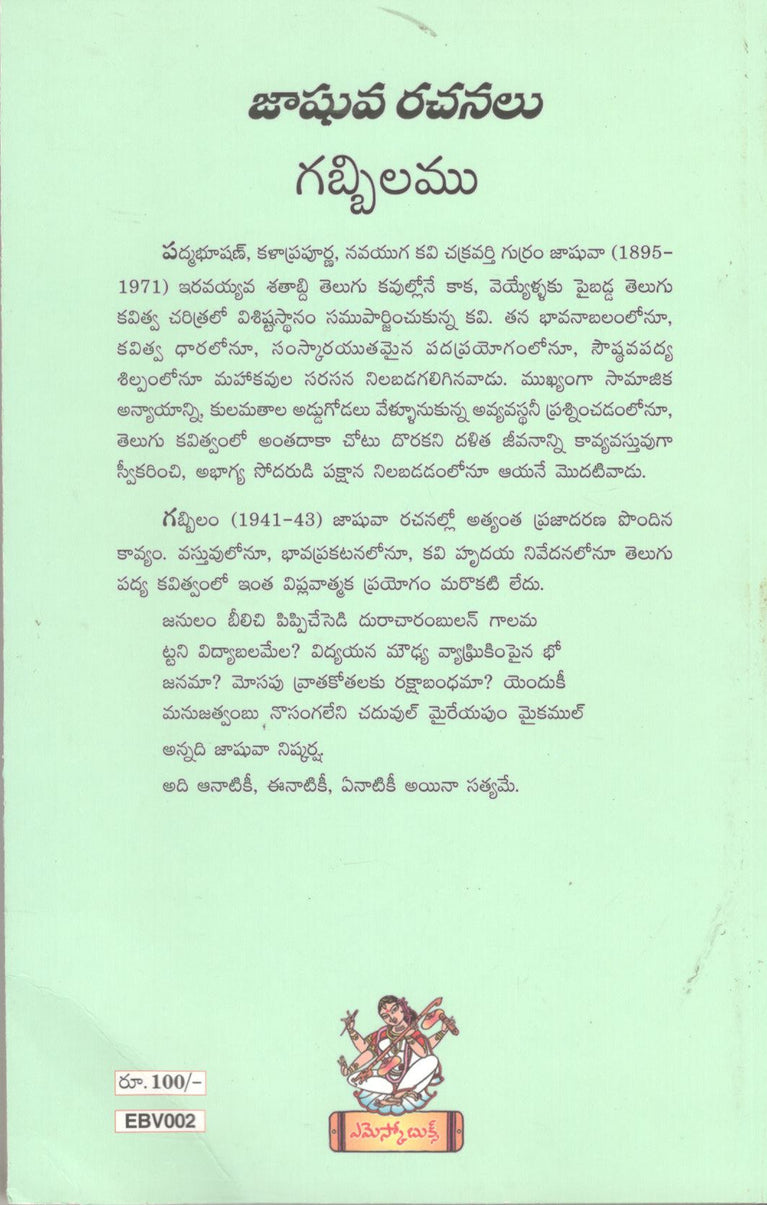 జాషువ రచనలు
గబ్బిలము
పద్మభూషణ్, కళాప్రపూర్ణ, నవయుగ కవి చక్రవర్తి గుర్రం జాషువా (1895-
1971) ఇరవయ్యవ శతాబ్ది తెలుగు కవుల్లోనే కాక, వెయ్యేళ్ళకు పైబడ్డ తెలుగు
కవిత్వ చరిత్రలో విశిష్టస్థానం సముపార్జించుకున్న కవి. తన భావనాబలంలోనూ,
కవిత్వ ధారలోనూ, సంస్కారయుతమైన పదప్రయోగంలోనూ, సౌష్ఠవపద్య
శిల్పంలోనూ మహాకవుల సరసన నిలబడగలిగినవాడు. ముఖ్యంగా సామాజిక
అన్యాయాన్ని, కులమతాల అడ్డుగోడలు వేళ్ళూనుకున్న అవ్యవస్థనీ ప్రశ్నించడంలోనూ,
తెలుగు కవిత్వంలో అంతదాకా చోటు దొరకని దళిత జీవనాన్ని కావ్యవస్తువుగా
స్వీకరించి, అభాగ్య సోదరుడి పక్షాన నిలబడడంలోనూ ఆయనే మొదటివాడు.
గబ్బిలం (1941-43) జాషువా రచనల్లో అత్యంత ప్రజాదరణ పొందిన
కావ్యం. వస్తువులోనూ, భావప్రకటనలోనూ, కవి హృదయ నివేదనలోనూ తెలుగు
పద్య కవిత్వంలో ఇంత విప్లవాత్మక ప్రయోగం మరొకటి లేదు.
జనులం బీలిచి పిప్పిచేసెడి దురాచారంబులన్ గాలమ
ట్టని విద్యాబలమేల? విద్యయన మౌఢ్య వ్యాఘ్రికింపైన భో
జనమా? మోసపు వ్రాతకోతలకు రక్షాబంధమా? యెందుకీ
మనుజత్వంబు నొసంగలేని చదువుల్ మైరేయపుం మైకముల్
అన్నది జాషువా నిష్కర్ష.
అది ఆనాటికీ, ఈనాటికీ, ఏనాటికీ అయినా సత్యమే.
రూ. 100/-
EBV002
ఎమెస్కో బుక్స్